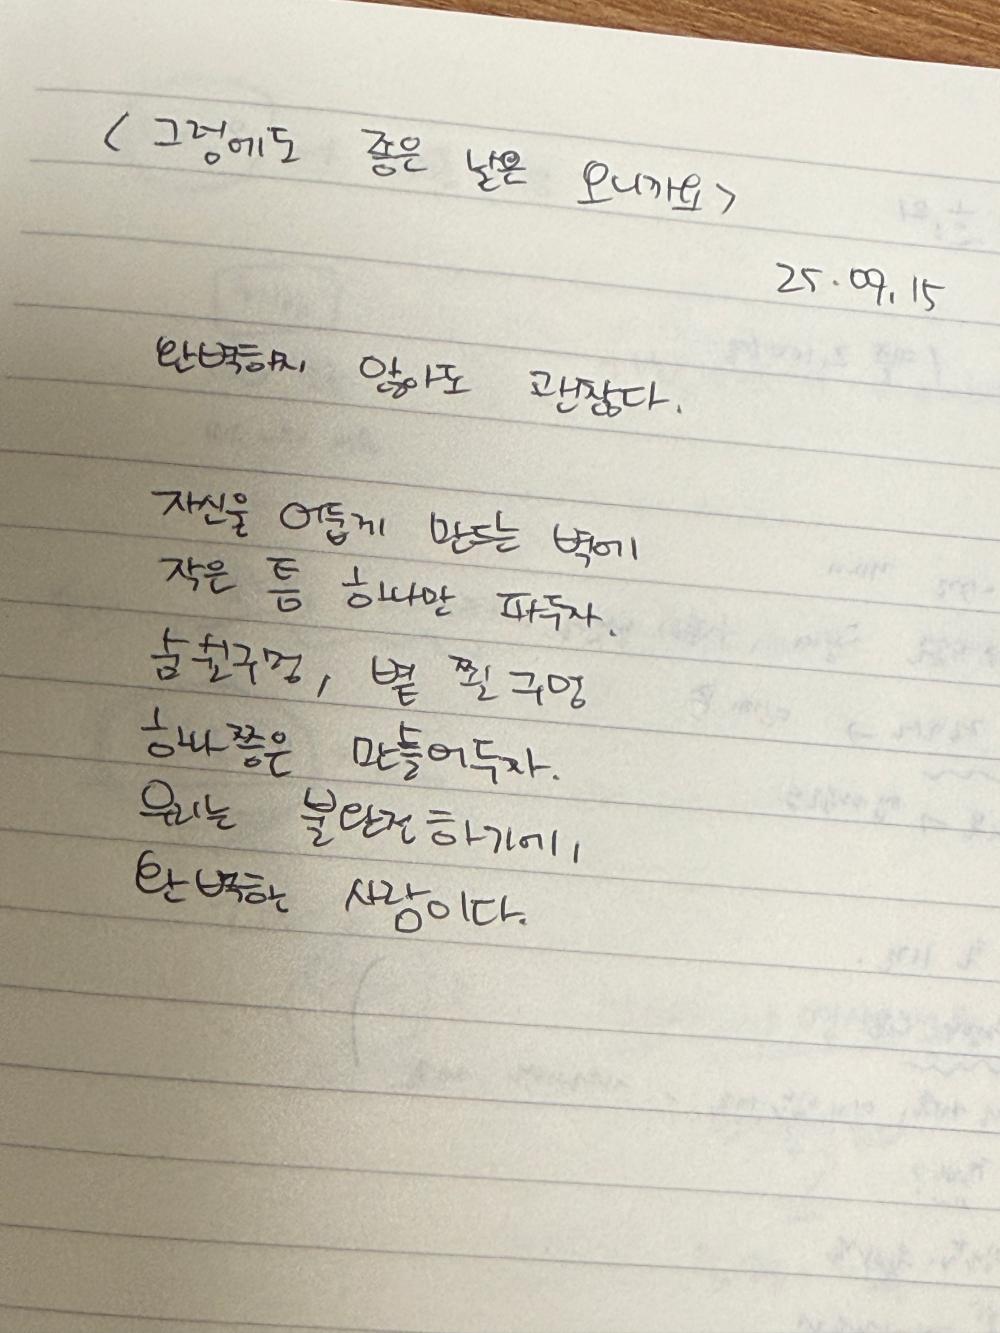 < 그럼에도 좋은 날은 오니까요>
25.09.15
완벽하지 않아도 괜찮다.
자신을 어둡게 만드는 벽에
작은 틈 하나만 파두자.
숨 쉴구멍, 볕 쬘 구멍
하나쯤은 만들어두자.
우리는 불완전하기에,
완벽한 사람이다.